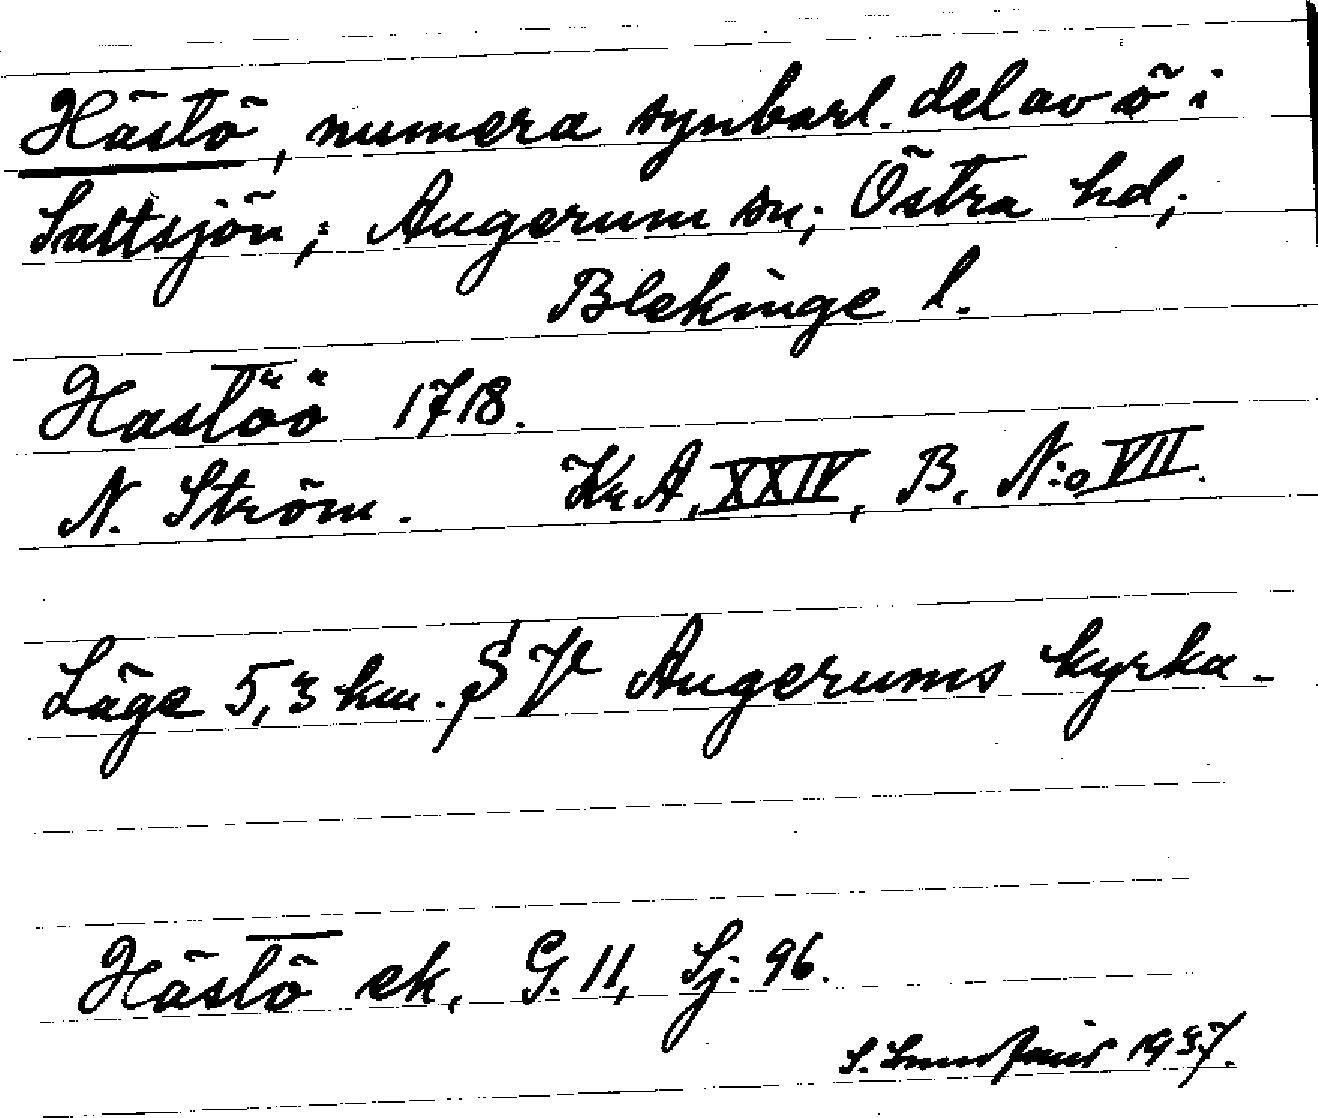 Hästö, numera synbarl. del av ö i
Saltsjön; Augerum sn; Östra hd;
Blekinge l.
Hastöö 1718.
N. Ström. Kr A, XXIV, B. N:o VII.
Läge 5,3 km. S V Augerums kyrka.
Hästö ek, G. 11, Sj. 96.
S. 1937.